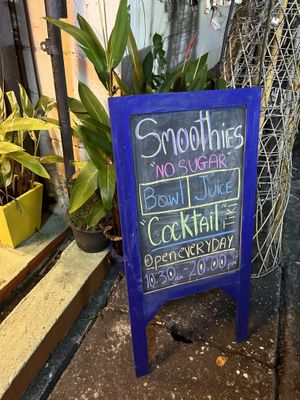 Smoothies
"NO SUGAR"
Bowl Juice
Cocktail
OPEN EVERYDAY
10:30 am - 20.00 pm